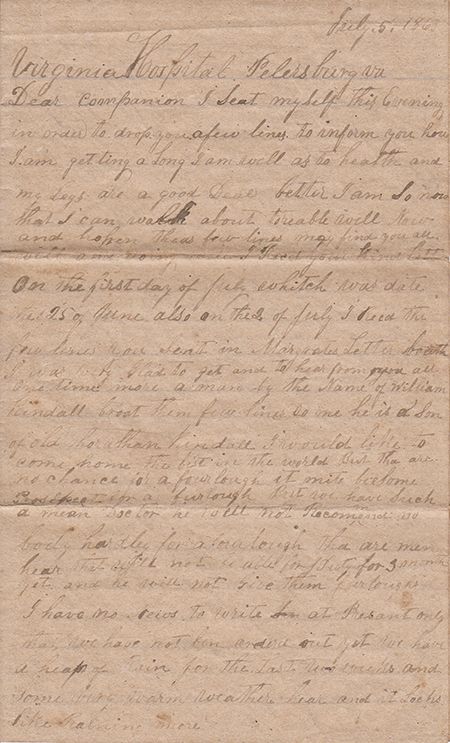 July. 5. 186
Virginia Hospital Petersburg va
Dear companion I Seat myself this Evening
in order to drop you a few lines to inform you how
I am getting a long I am well as to health and
my Legs are a good Deal better I am So now
that I can walk about toreable well Now
and hopen theas few lines may find you all
well and I Recd your kind let
On the first day of July whitch was date
the 25 of June also on the 2 of July I Recd the
few lines you Sent in Margrets Letter
I was very glad to get and to hear from you all
one time more a man by the Name of William
Kindall brout them few lines to me he is a Son
of old Jhonathan kindall I would like to
come home the best in the world But tha are
no chance for a fourlough it mite be Some
for a furlough But we have Such
a mean Doctor he will not Recomend no
body hardley for a fourlough tha are men
hear that will not be able for Duty for 3 month
yet and he will not give them furloughs
I have no news to write at Presant only
that we have not ben orderd out yet we have
a heap of Rain for the last two weeks and
Some very warm weather hear and it Looks
like Raining more